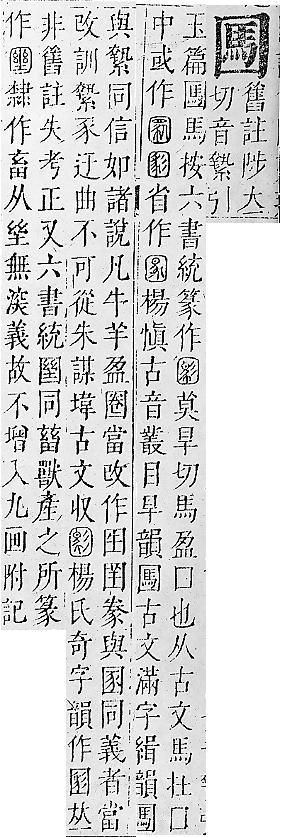 ⿴囗馬
舊註陟立
切音縶引
玉篇⿴囗馬馬按六書統篆作莫旱切馬盈囗也从古文馬在囗
中或作省作楊愼古音叢目旱韻⿴囗馬古文滿字緝韻⿴囗馬
與縶同信如諸說凡牛羊盈圈當改作⿴囗牛⿴囗羊豢與圂同義者當
改訓縶豕迂曲不可從朱謀㙔古文收楊氏奇字韻作𠀤
非舊註失考正又六書統同嘼獸產之所篆
作隸作畜从無深義故不增入九画附記